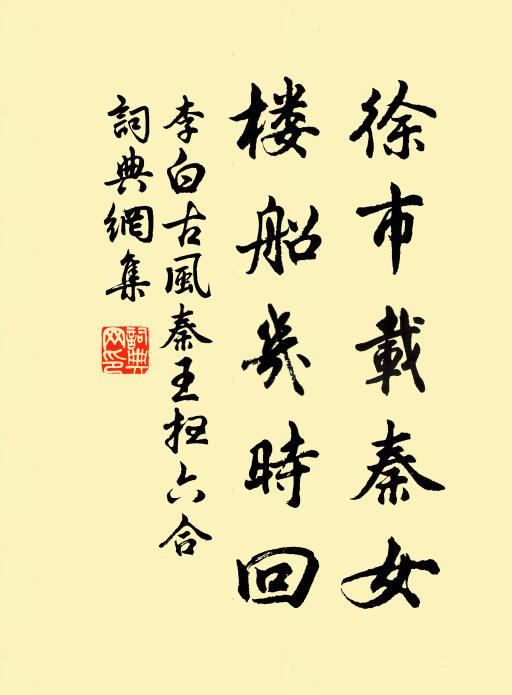 徐市載秦女
楼船幾時回
李白古風秦王掃六合
詞典網集
詞典網印